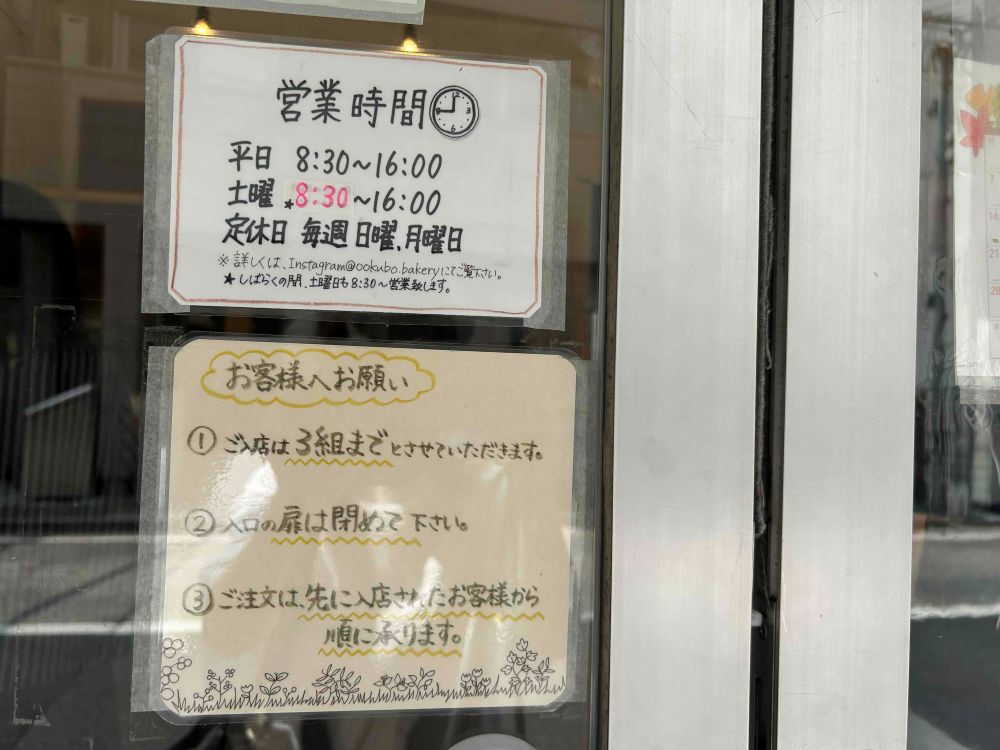 営業時間
12
9 3
6
平日 8:30～16:00
土曜 ★8:30～16:00
定休日 毎週 日曜、月曜日
※詳しくは、Instagram@ookubo.bakeryにてご覧下さい。
★しばらくの間、土曜日も8:30～営業致します。
お客様へお願い
① ご入店は3組までとさせていただきます。
② 入口の扉は閉めて下さい。
③ ご注文は、先に入店されたお客様から
順に承ります。
7
14
21
28